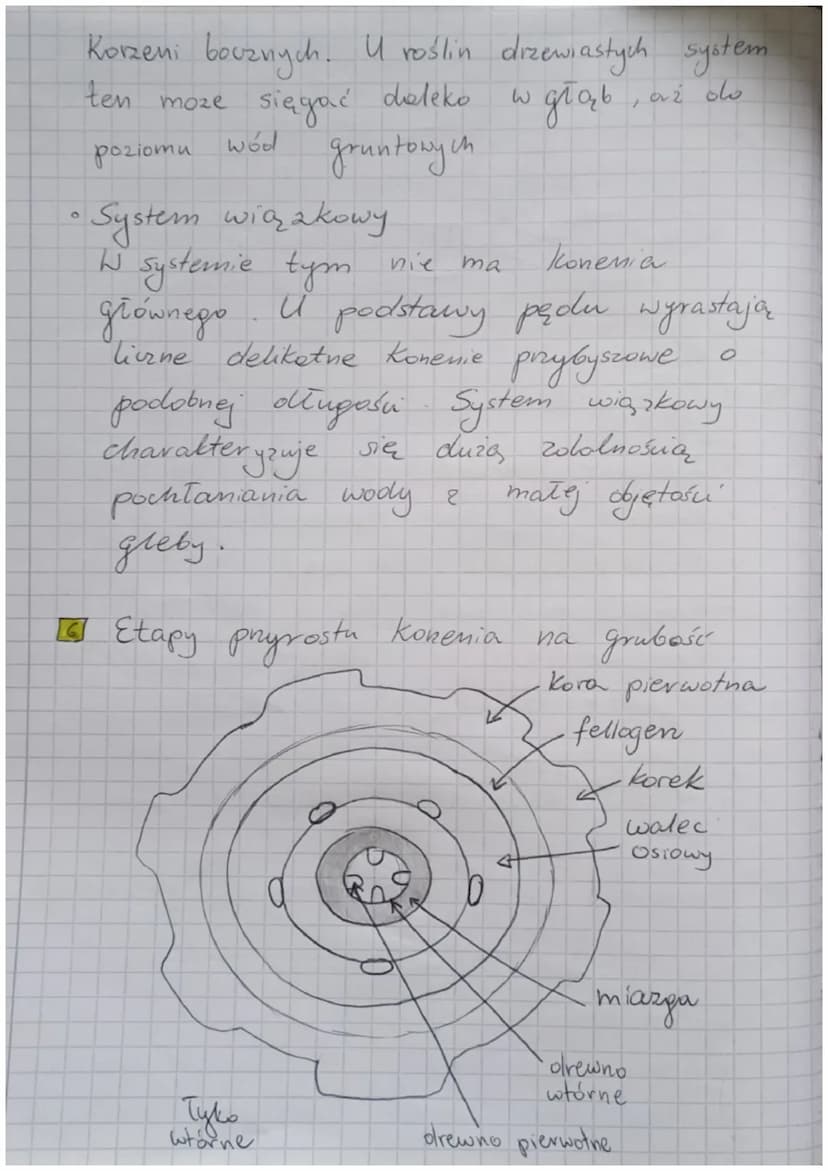 Korzeni bocznych. U roślin drzewiastych system
ten moze sięgać daleko w głąb, aż do
poziomu wód gruntowych
• System wiązkowy
W systemie tym nie ma korzenia
głównego. U podstawy pędu wyrastają
liczne delikatne korzenie przybyszowe o
podobnej długości. System wiązkowy
charakteryzuje się dużą zdolnością
pochłaniania wody z małej objętości
gleby.
6 Etapy przyrostu korzenia na grubość
kora pierwotna
fellogen
korek
walec
osiowy
miazga
drewno
wtórne
Łyko
wtórne
drewno pierwotne